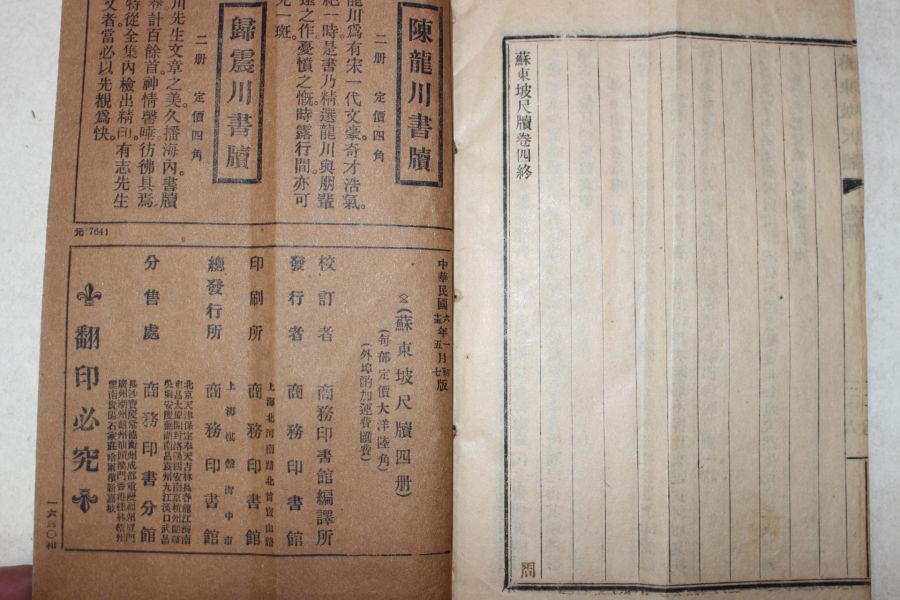 蘇東坡尺牘卷四終
周
陳龍川書牘
二册 定價四角
龍川爲有宋一代文豪奇才浩氣。
絕一時是書乃精選龍川與朋輩
遠之作憂憤之慨時露行間亦可
見一斑。
歸震川書牘
二册 定價四角
川先生文章之美久播海內書牘
計百餘首神情謦欬彷彿具焉
特從全集內檢出精印有志先生
文者當必以先覩爲快。
元(764)
中華民國
六年一月初版
五月七版
(蘇東坡尺牘四册)
(每部定價大洋陸角)
(外埠酌加運費匯費)
校訂者 商務印書館編譯所
發行者 商務印書館
上海北河南路北首寶山路
印刷所 商務印書館
上海棋盤街中市
總發行所 商務印書館
分售處 商務印書分館
北京天津保定奉天吉林長春龍江濟南
翻印必究
一六三〇和